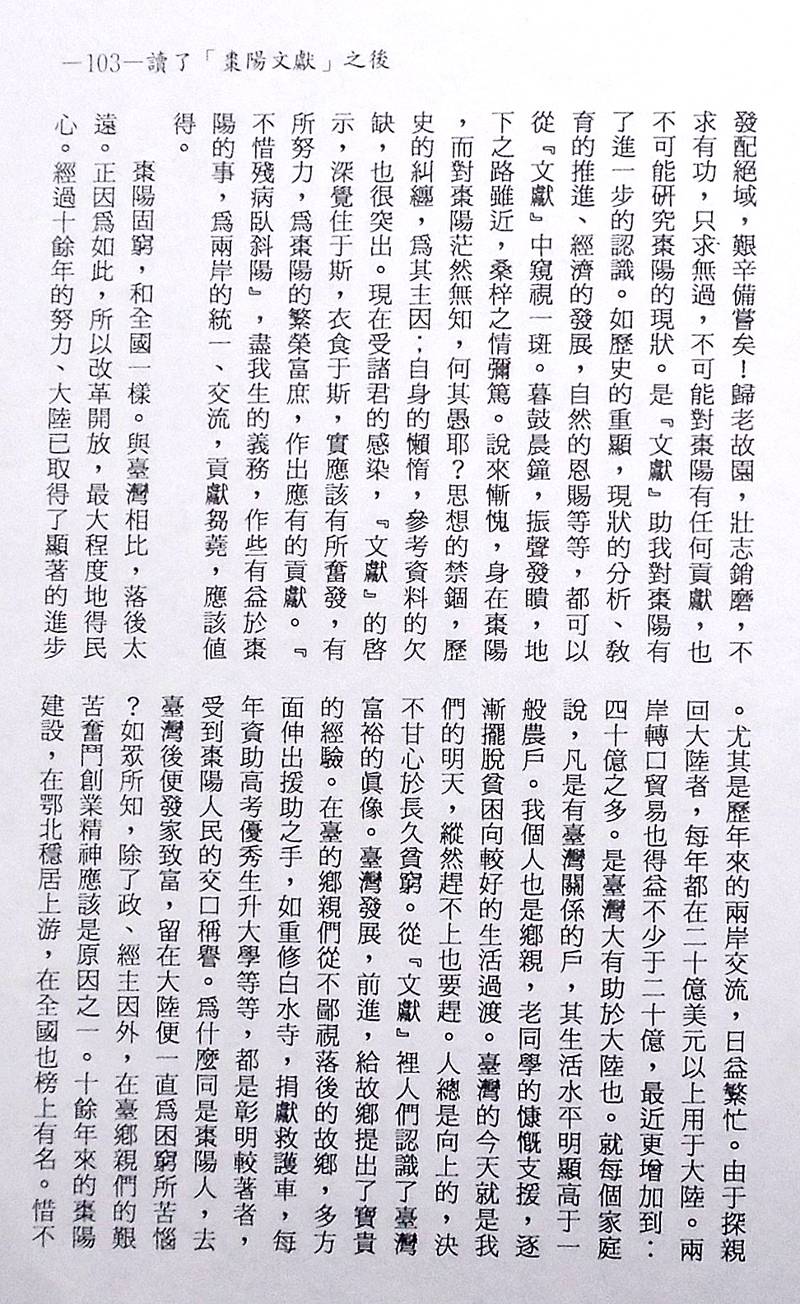 —103—讀了「棗陽文獻」之後
發配絕域，艱辛備嘗矣！歸老故園，壯志銷磨，不
求有功，只求無過，不可能對棗陽有任何貢獻，也
不可能研究棗陽的現狀。是『文獻』助我對棗陽有
了進一步的認識。如歷史的重顯，現狀的分析、教
育的推進、經濟的發展，自然的恩賜等等，都可以
從『文獻』中窺視一斑。暮鼓晨鐘，振聲發瞶，地
下之路雖近，桑梓之情彌篤。說來慚愧，身在棗陽
，而對棗陽茫然無知，何其愚耶？思想的禁錮，歷
史的糾纏，爲其主因；自身的懶惰，參考資料的欠
缺，也很突出。現在受諸君的感染，『文獻』的啓
示，深覺住于斯，衣食于斯，實應該有所奮發，有
所努力，爲棗陽的繁榮富庶，作出應有的貢獻。『
不惜殘病臥斜陽』，盡我生的義務，作些有益於棗
陽的事，爲兩岸的統一、交流，貢獻芻蕘，應該値
得。
棗陽固窮，和全國一樣。與臺灣相比，落後太
遠。正因爲如此，所以改革開放，最大程度地得民
心。經過十餘年的努力、大陸已取得了顯著的進步
。尤其是歷年來的兩岸交流，日益繁忙。由于探親
回大陸者，每年都在二十億美元以上用于大陸。兩
岸轉口貿易也得益不少于二十億，最近更增加到：
四十億之多。是臺灣大有助於大陸也。就每個家庭
說，凡是有臺灣關係的戶，其生活水平明顯高于一
般農戶。我個人也是鄉親，老同學的慷慨支援，逐
漸擺脫貧困向較好的生活過渡。臺灣的今天就是我
們的明天，縱然趕不上也要趕。人總是向上的，決
不甘心於長久貧窮。從『文獻』裡人們認識了臺灣
富裕的眞像。臺灣發展，前進，給故鄉提出了寶貴
的經驗。在臺的鄉親們從不鄙視落後的故鄉，多方
面伸出援助之手，如重修白水寺，捐獻救護車，每
年資助高考優秀生升大學等等，都是彰明較著者，
受到棗陽人民的交口稱譽。爲什麼同是棗陽人，去
臺灣後便發家致富，留在大陸便一直爲困窮所苦惱
？如眾所知，除了政、經主因外，在臺鄉親們的艱
苦奮鬥創業精神應該是原因之一。十餘年來的棗陽
建設，在鄂北穩居上游，在全國也榜上有名。惜不